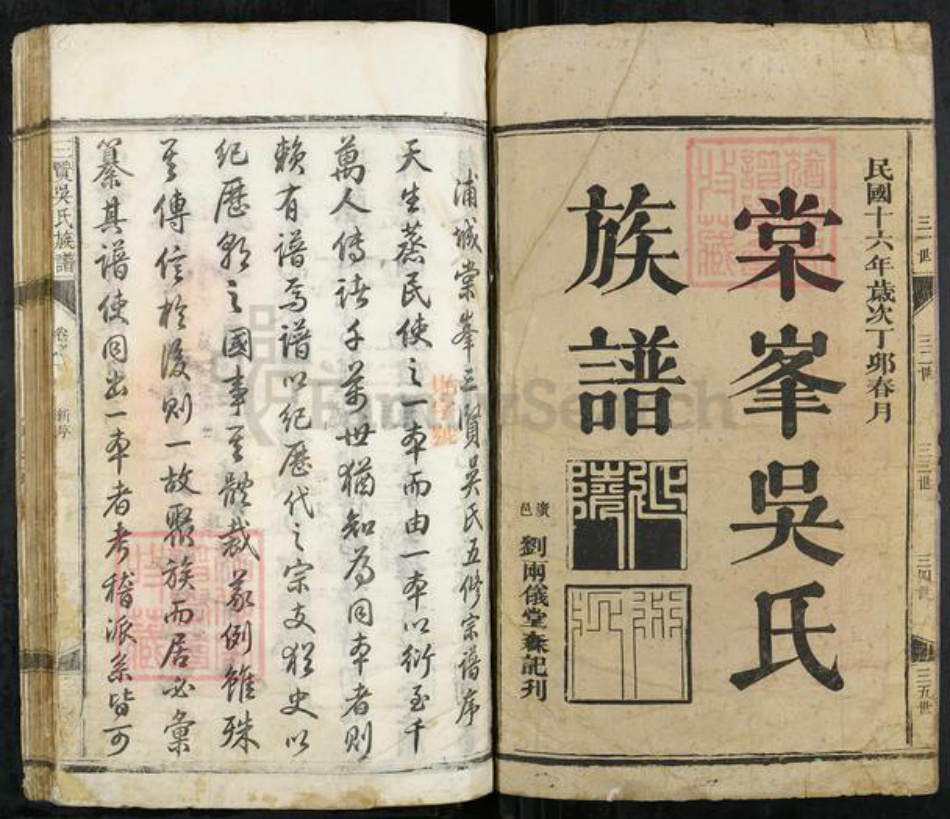 民國十六年歲次丁卯春月
棠峯吳氏
族譜
延陵
廣邑
劉兩儀堂森記刊
三一世
三二世
三三世
三四世
三五世
浦城棠峯三賢吳氏五修宗譜序
天生蒸民使之一本而由一本以衍至千
萬人傳諸千萬世猶知為同本者則
賴有譜焉譜以紀歷代之宗支猶史以
紀歷朝之國事其體裁義例雖殊
其傳信於後則一故聚族而居必彙
纂其譜使同出一本者考稽派系皆可
三賢吳氏族譜
新序
FamilySearch